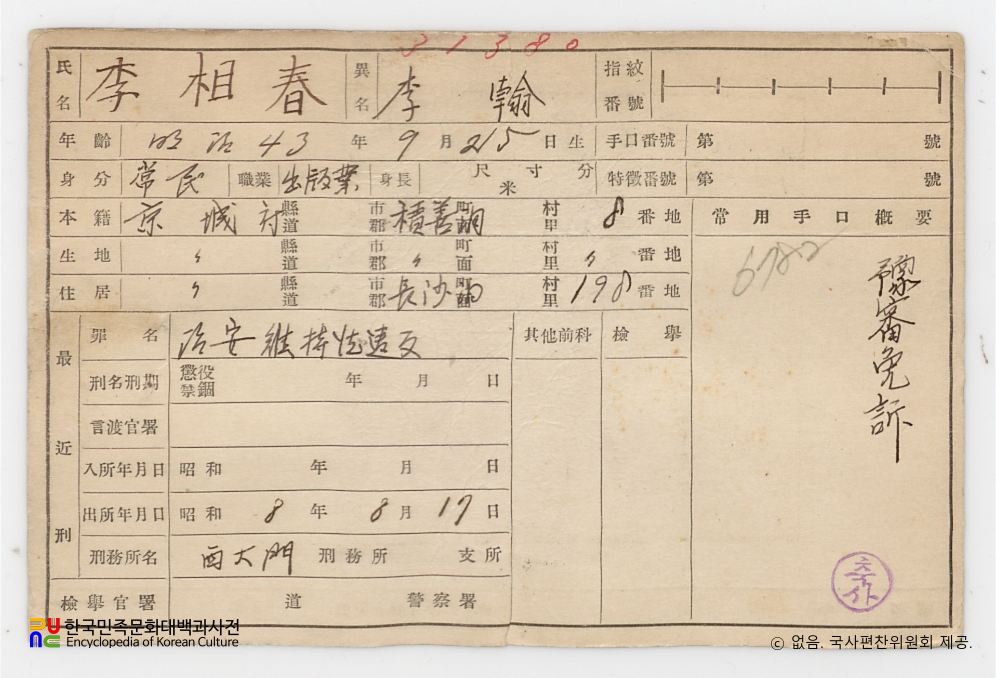 31380
氏名 李相春 異名 李翰 指紋番號
年齡 明治43年9月25日生 手口番號 第 號
身分 常民 職業 出版業 身長 尺寸分 米 特徵番號 第 號
本籍 京城府 縣道 市郡 積善 町面 村里 8番地 常用手口概要
生地 〃 縣道 市郡 〃 町面 村里 〃 番地
住居 〃 縣道 市郡 長沙 町面 村里 198番地
6782
豫審免訴
最近刑
罪名 治安維持法違反 其他前科 檢擧
刑名刑期 懲役 禁錮 年 月 日
言渡官署
入所年月日 昭和 年 月 日
出所年月日 昭和8年8月17日
刑務所名 西大門 刑務所 支所
檢擧官署 道 警察署
한국민족문화대백과사전
Encyclopedia of Korean Culture
© 없음. 국사편찬위원회 제공.